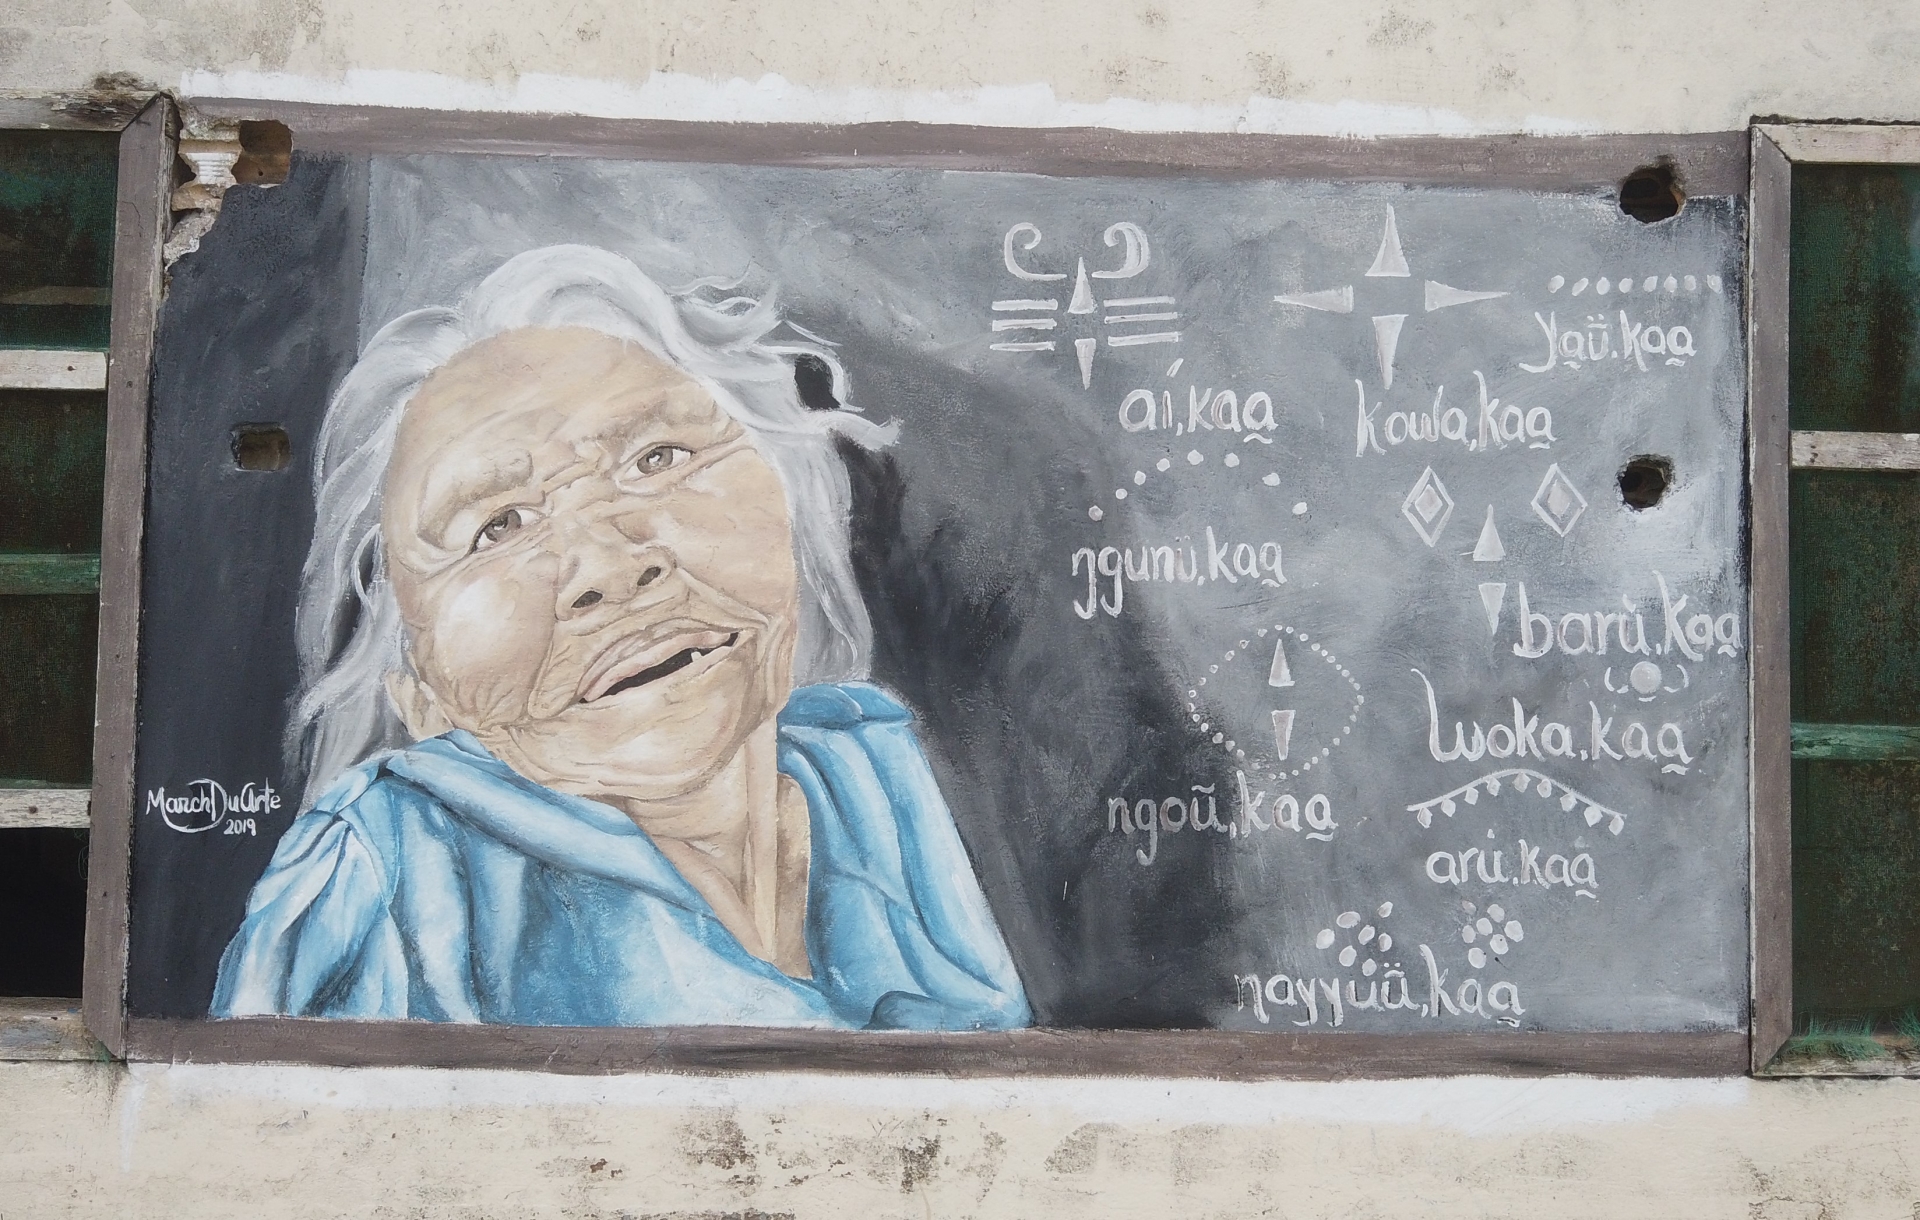 yaü̱.kaa̱
aí,kaa̱
kowa,kaa̱
ngunü,kaa̱
barü.kaa̱
woka.kaa̱
MarchDuArte
2019
ngoũ,kaa̱
arü.kaa̱
nayyüü̃,kaa̱